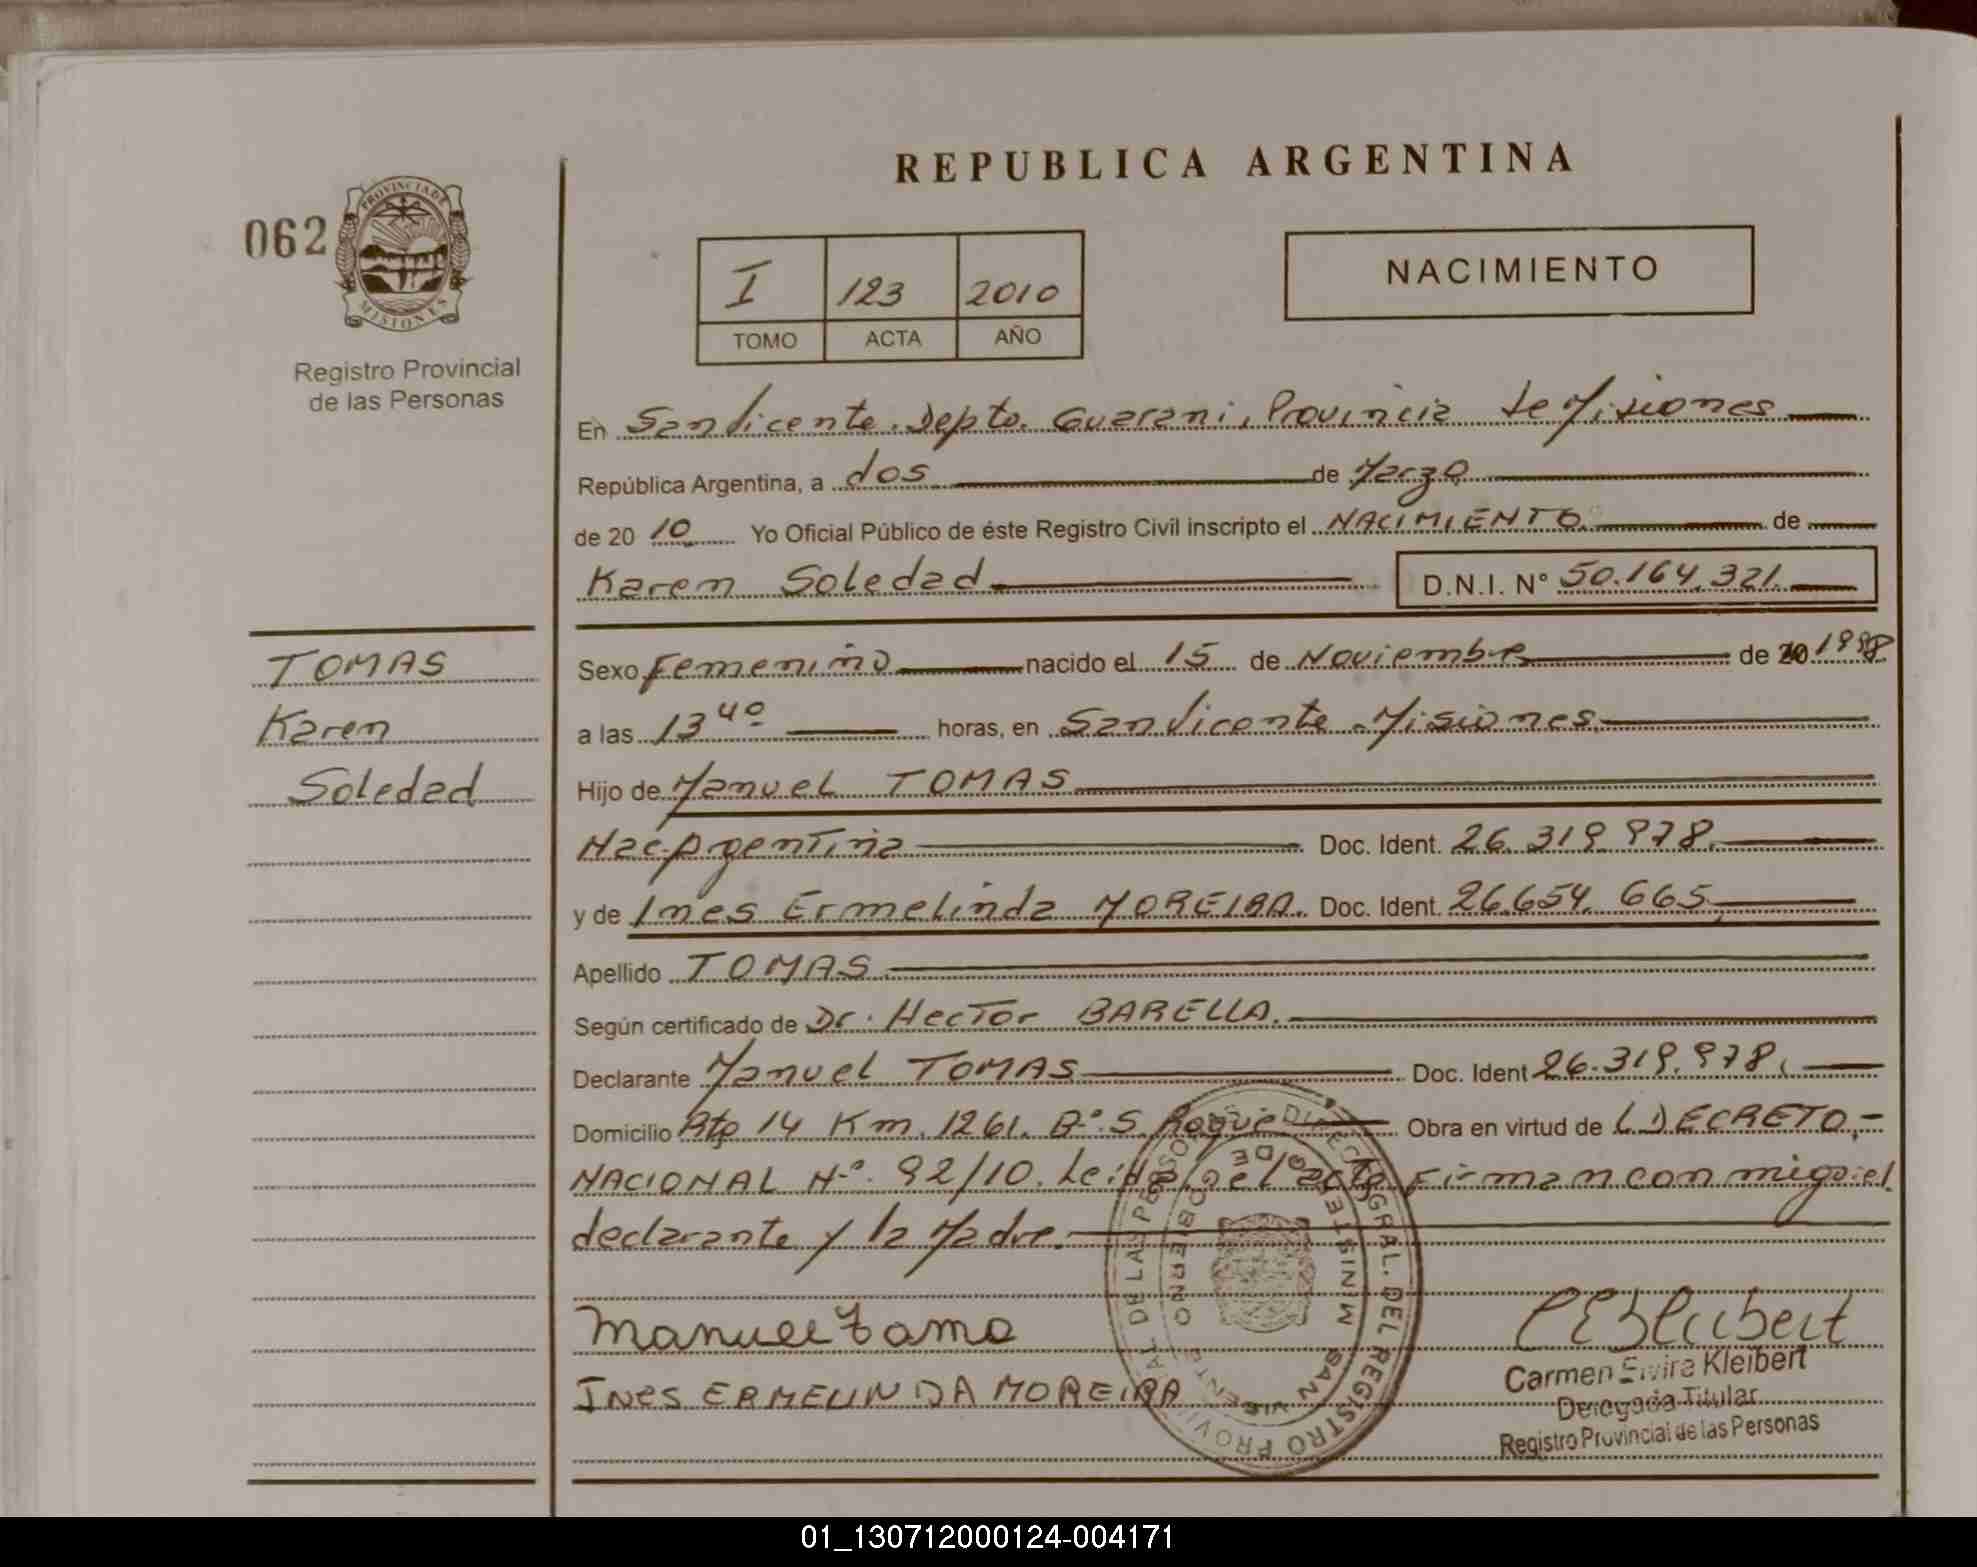 REPUBLICA ARGENTINA
062
PROVINCIA DE
MISIONES
Registro Provincial
de las Personas
I 123 2010
TOMO ACTA AÑO
NACIMIENTO
En San Vicente. Depto. Guarani, Provincia de Misiones
República Argentina, a dos de Marzo
de 20 10 Yo Oficial Público de éste Registro Civil inscripto el NACIMIENTO de
Karen Soledad D.N.I. N° 50.164.321.
TOMAS
Karen
Soledad
Sexo Femenino nacido el 15 de Noviembre de 20 1998
a las 13 40 horas, en San Vicente Misiones
Hijo de Manuel TOMAS
Nac. Argentina Doc. Ident. 26.319.978.
y de Ines Ermelinda MOREIRA. Doc. Ident. 26.654.665,
Apellido TOMAS
Según certificado de Dr. Hector BARELLA.
Declarante Manuel TOMAS Doc. Ident 26.319.978.
Domicilio Rta 14 Km. 1261. B°. S. Roque Obra en virtud de (DECRETO,-
NACIONAL N°. 92/10. Leida el acta Firman conmigo: el
declarante y la Madre.
Manuel Toma
INES ERMELINDA MOREIRA
Carmen Elvira Kleibert
Delegada Titular
Registro Provincial de las Personas
DIREC. GRAL. DEL REGISTRO PROVINCIAL DE LAS PERSONAS
MINISTERIO DE GOBIERNO
SAN VICENTE
01_130712000124-004171